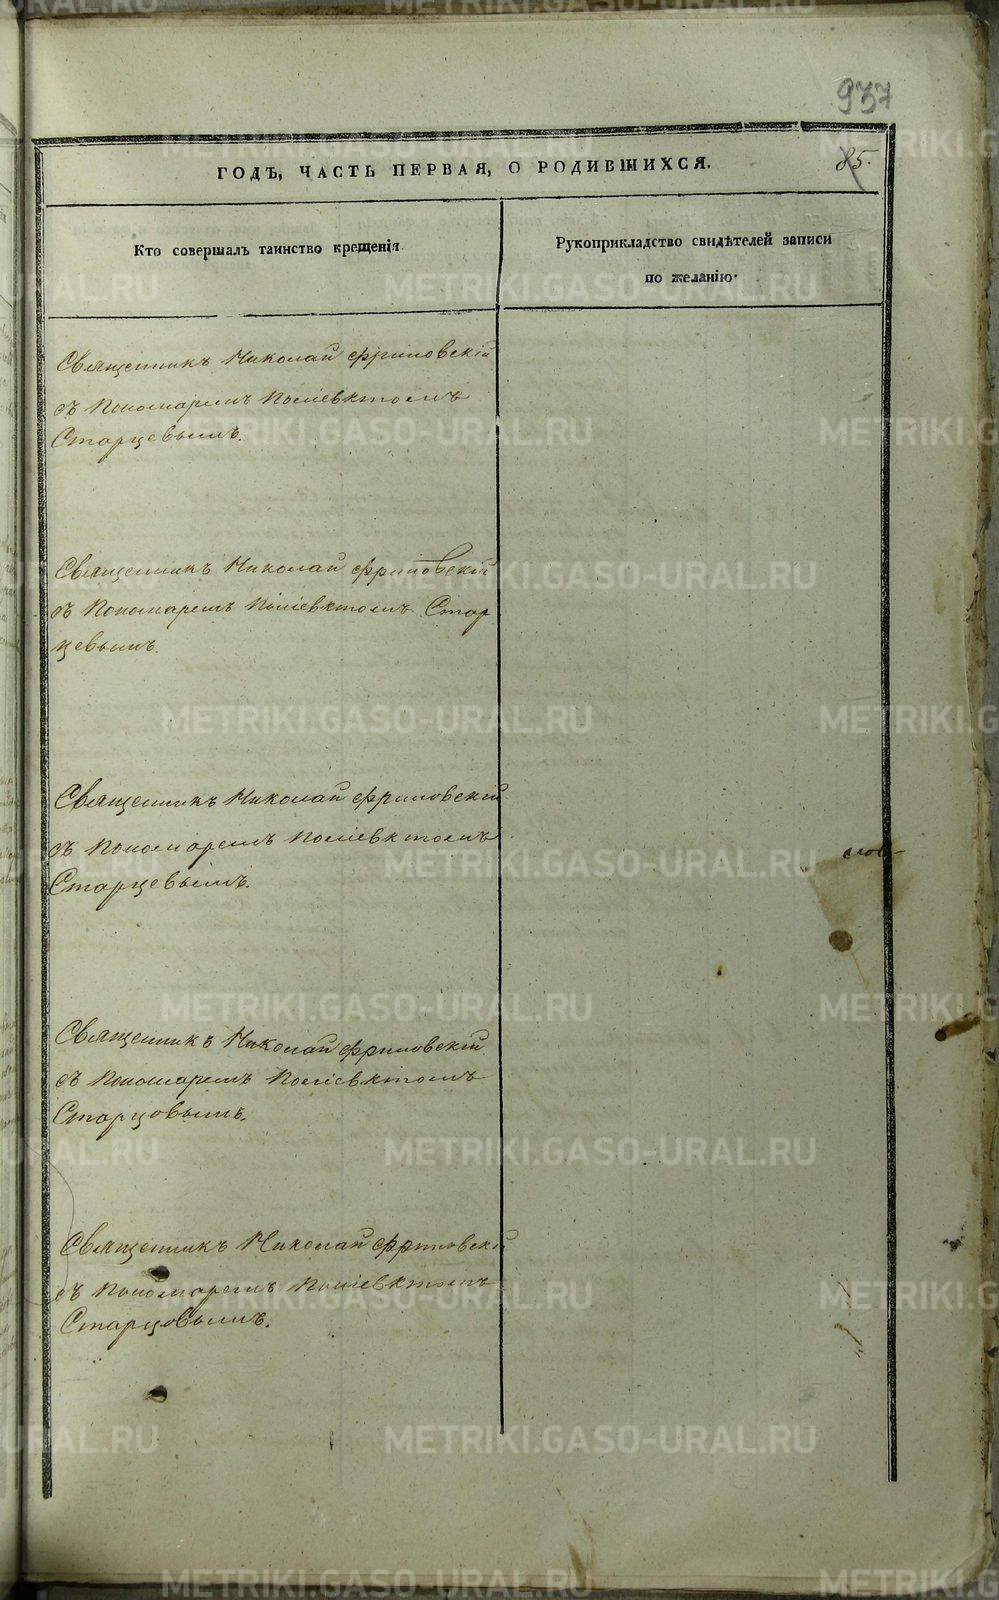 937
ГОДЪ, ЧАСТЬ ПЕРВАЯ, О РОДИВШИХСЯ.
85.
Кто совершалъ таинство крещенія
Рукоприкладство свидѣтелей записи
по желанію.
Священникъ Николай Фриловскій
съ Пономаремъ Поліевктомъ
Старцевымъ.
Священникъ Николай Фриловскій
съ Пономаремъ Поліевктомъ Стар
цевымъ.
Священникъ Николай Фриловскій
съ Пономаремъ Поліевктомъ
Старцевымъ.
Священникъ Николай Фриловскій
съ Пономаремъ Поліевктомъ
Старцовымъ.
Священникъ Николай Фриловскій
съ Пономаремъ Поліевктомъ
Старцовымъ.
METRIKI.GASO-URAL.RU